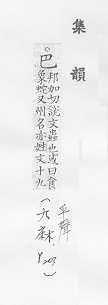 集韻
巴邦加切說文蟲也或曰食
象蛇又州名亦姓文十九
平聲
(六麻)